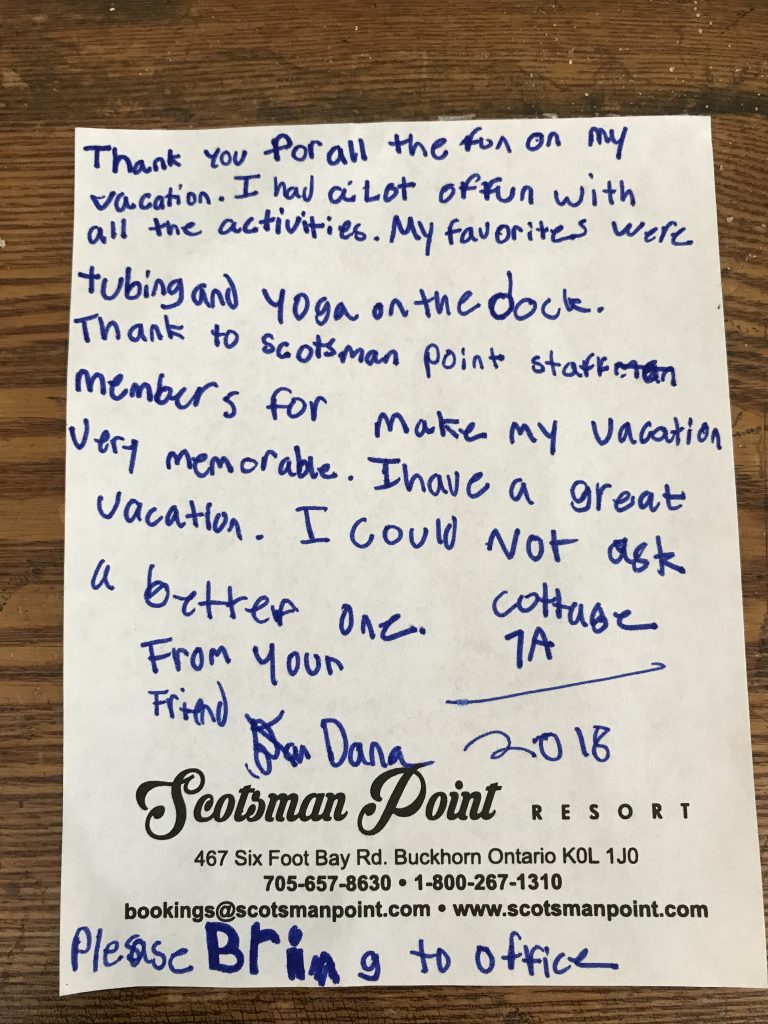 Thank you for all the fun on my
vacation. I had a Lot of fun with
all the activities. My favorites were
tubing and yoga on the dock.
Thank to scotsman point staff
members for make my vacation
very memorable. I have a great
vacation. I could Not ask
a better one. cottage
From your 7A
Friend
Dana 2018
Scotsman Point RESORT
467 Six Foot Bay Rd. Buckhorn Ontario K0L 1J0
705-657-8630 • 1-800-267-1310
bookings@scotsmanpoint.com • www.scotsmanpoint.com
Please Bring to office